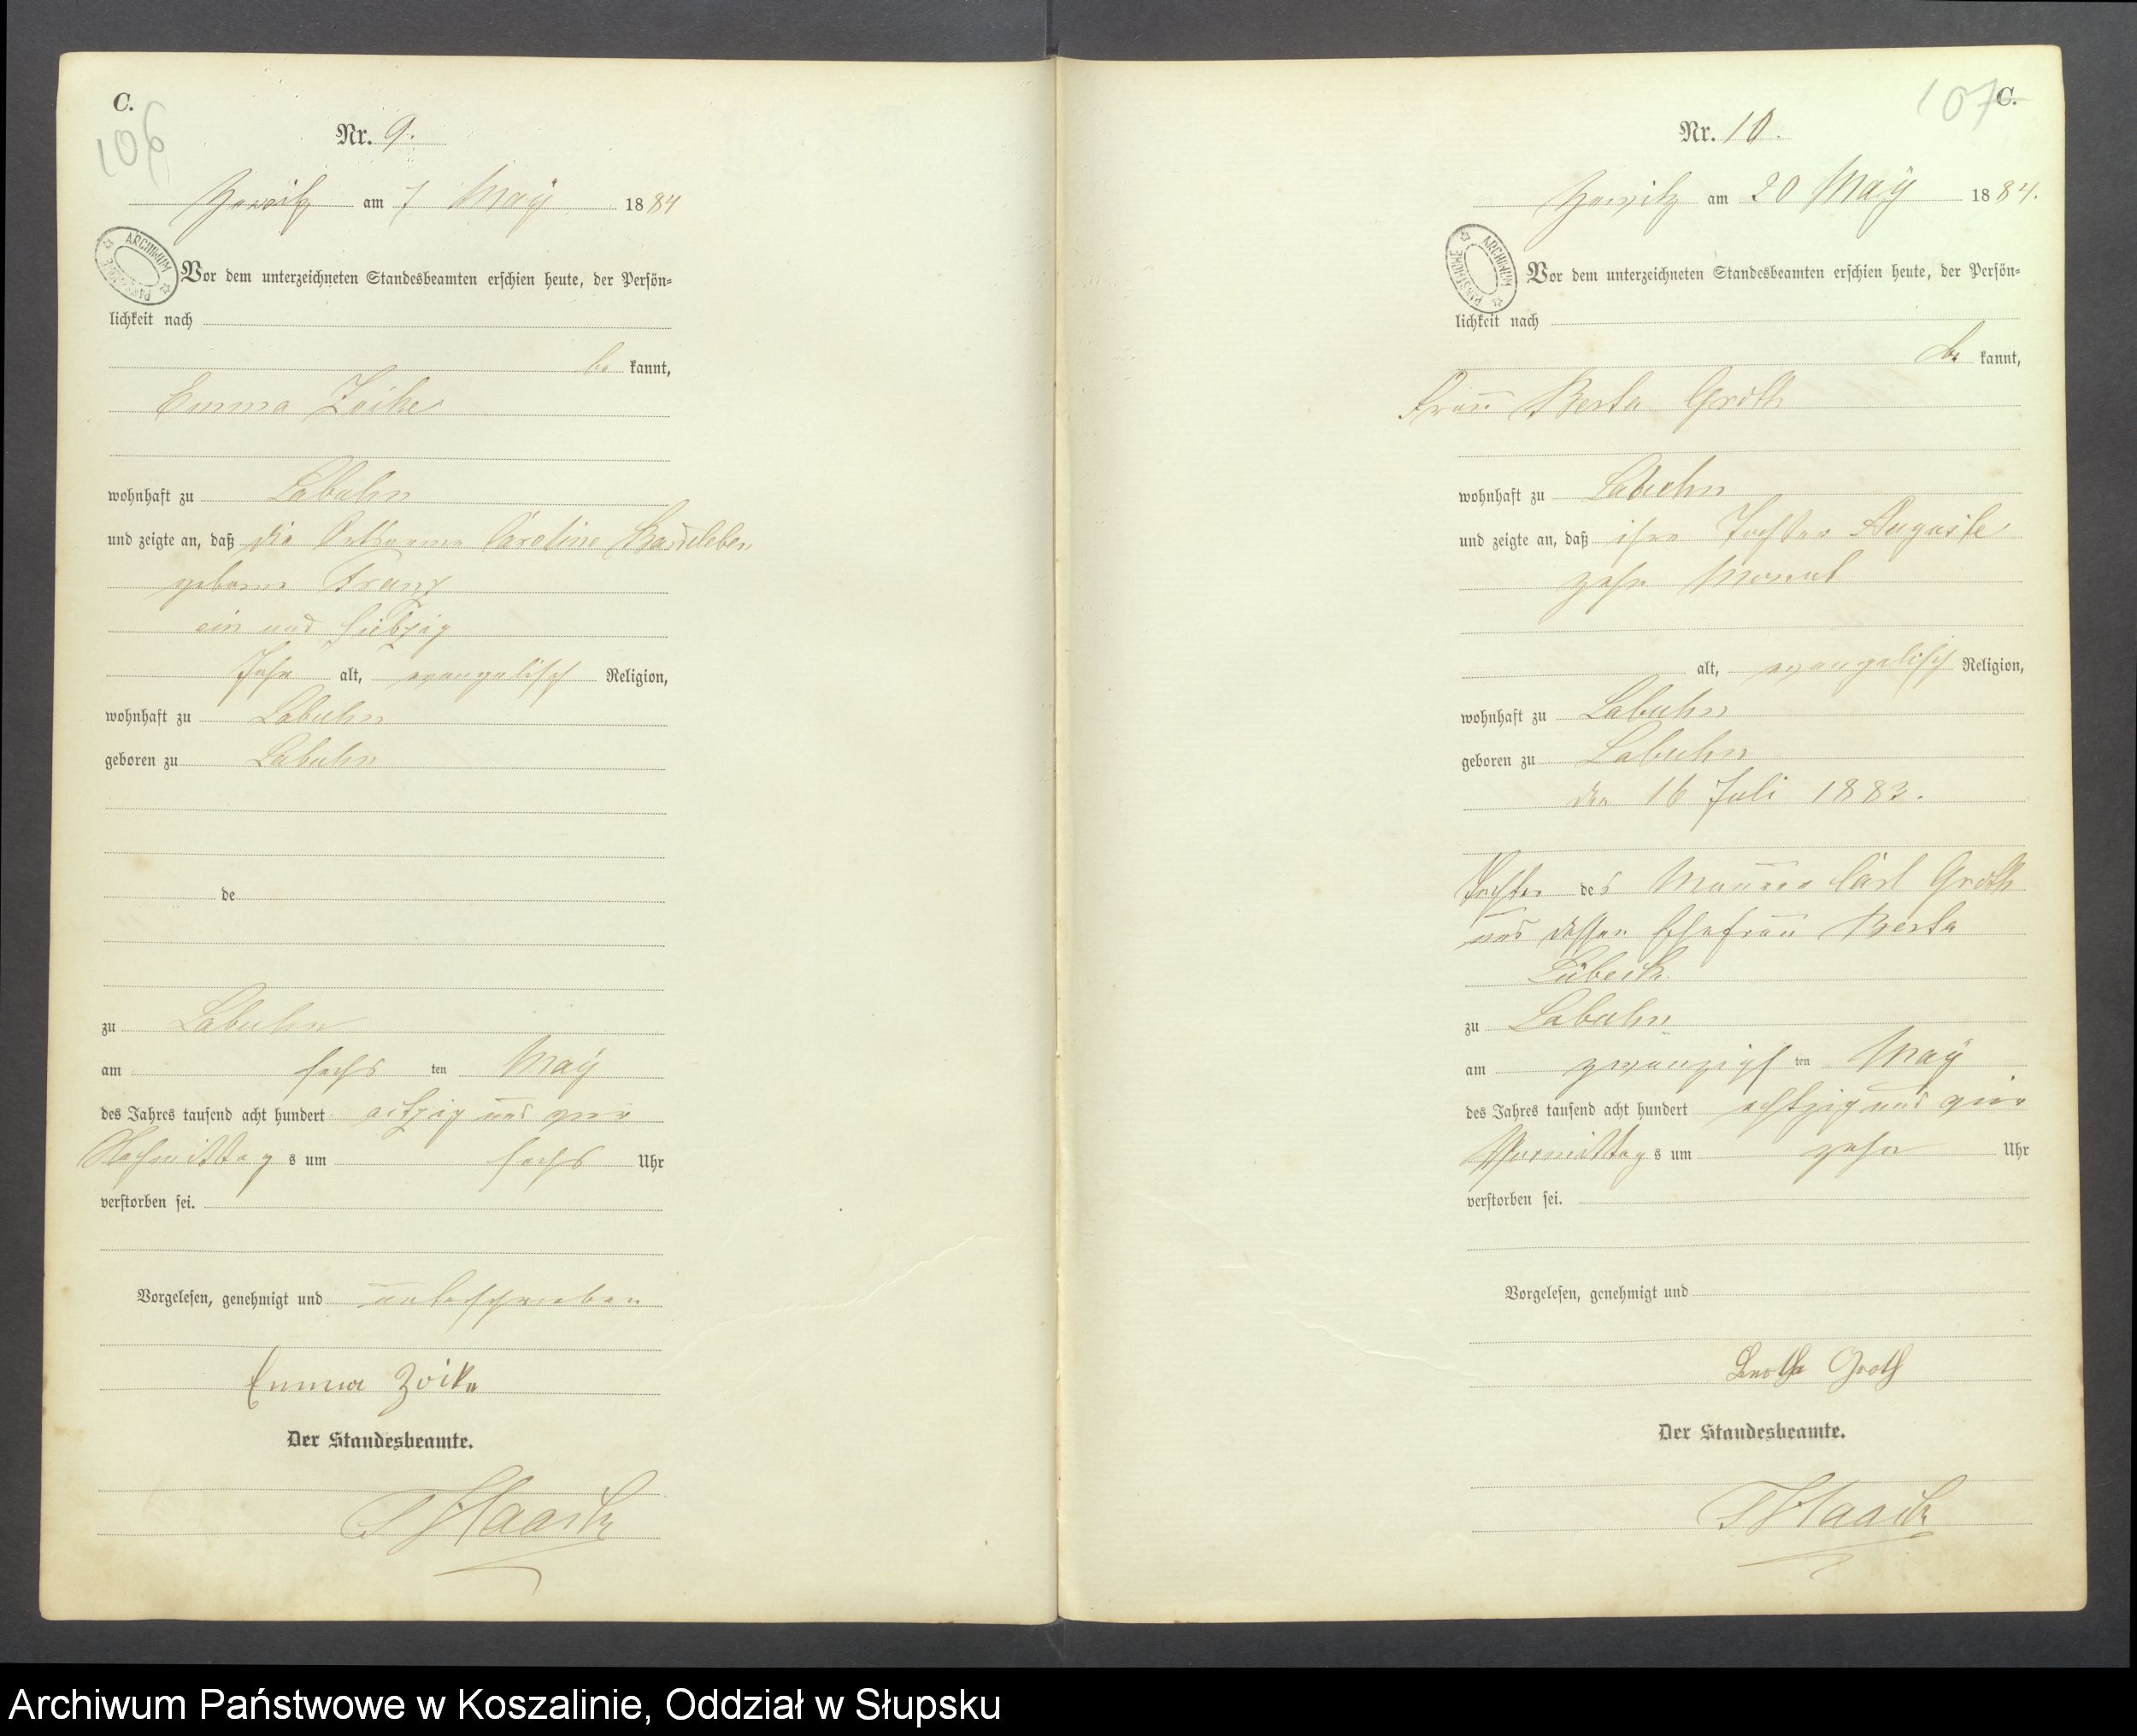 C.
106
Nr. 9.
am 7 May 1884
ARCHIWUM PAŃSTWOWE
Vor dem unterzeichneten Standesbeamten erschien heute, der Persön-
lichkeit nach
be kannt,
Emma Zoike
wohnhaft zu Labuhn
und zeigte an, daß die Caroline Bardeleben
geborne Franz
ein und siebzig
Jahr alt, evangelisch Religion,
wohnhaft zu Labuhn
geboren zu Labuhn
de
zu Labuhn
am sechs ten May
des Jahres tausend acht hundert achtzig und vier
Nachmittag s um sechs Uhr
verstorben sei.
Vorgelesen, genehmigt und unterschrieben
Emma Zoike
Der Standesbeamte.
Haack
107
C.
Nr. 10.
am 20 May 1884.
ARCHIWUM PAŃSTWOWE
Vor dem unterzeichneten Standesbeamten erschien heute, der Persön-
lichkeit nach
be kannt,
Frau Berta Groth
wohnhaft zu Labuhn
und zeigte an, daß ihre Tochter Auguste
zehn Monat
alt, evangelisch Religion,
wohnhaft zu Labuhn
geboren zu Labuhn
den 16 Juli 1883.
Tochter des Maurer Carl Groth
und dessen Ehefrau Berta
Lübeck
zu Labuhn
am zwanzigs ten May
des Jahres tausend acht hundert achtzig und vier
Vormittag s um zehn Uhr
verstorben sei.
Vorgelesen, genehmigt und
Bertha Groth
Der Standesbeamte.
Haack
Archiwum Państwowe w Koszalinie, Oddział w Słupsku